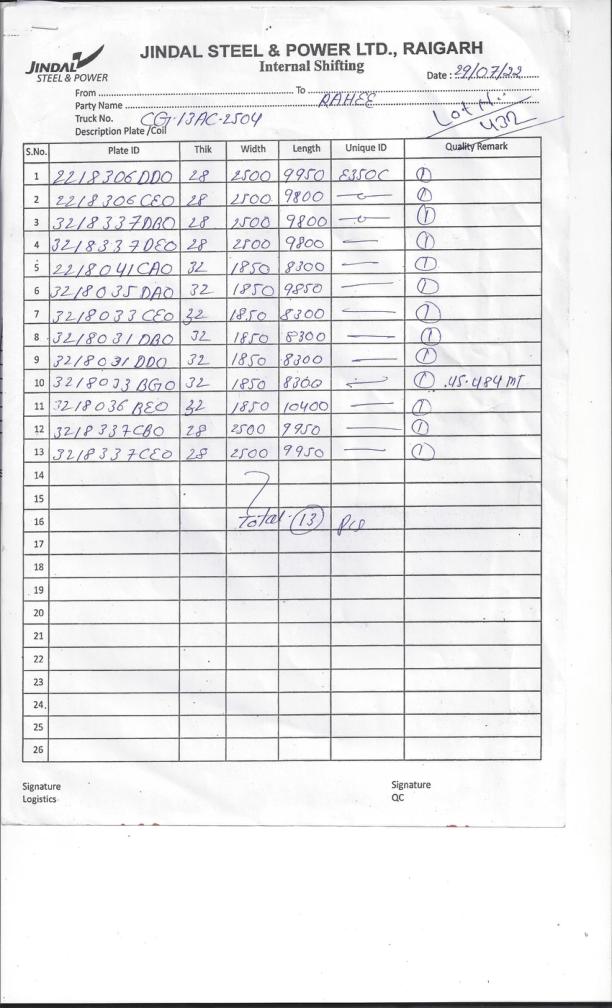 JINDAL
STEEL & POWER
JINDAL STEEL & POWER LTD., RAIGARH
Internal Shifting
Date : 29/07/22
From To
Party Name RAHEE
Truck No. CG-13AC-2504
Lot N.: 432
Description Plate /Coil
S.No. Plate ID Thik Width Length Unique ID Quality Remark
1 2218306DDO 28 2500 9950 E350C 1
2 2218306CEO 28 2500 9800 1
3 3218337DBO 28 2500 9800 1
4 3218337DEO 28 2500 9800 1
5 2218041CAO 32 1850 8300 1
6 3218035DAO 32 1850 9850 1
7 3218033CEO 32 1850 8300 1
8 3218031DBO 32 1850 8300 1
9 3218031DDO 32 1850 8300 1
10 3218033BGO 32 1850 8300 1 .45.484 MT
11 3218036BEO 32 1850 10400 1
12 3218337CBO 28 2500 9950 1
13 3218337CEO 28 2500 9950 1
14
15
16 Total - 13 pcs
17
18
19
20
21
22
23
24.
25
26
Signature Signature
Logistics QC